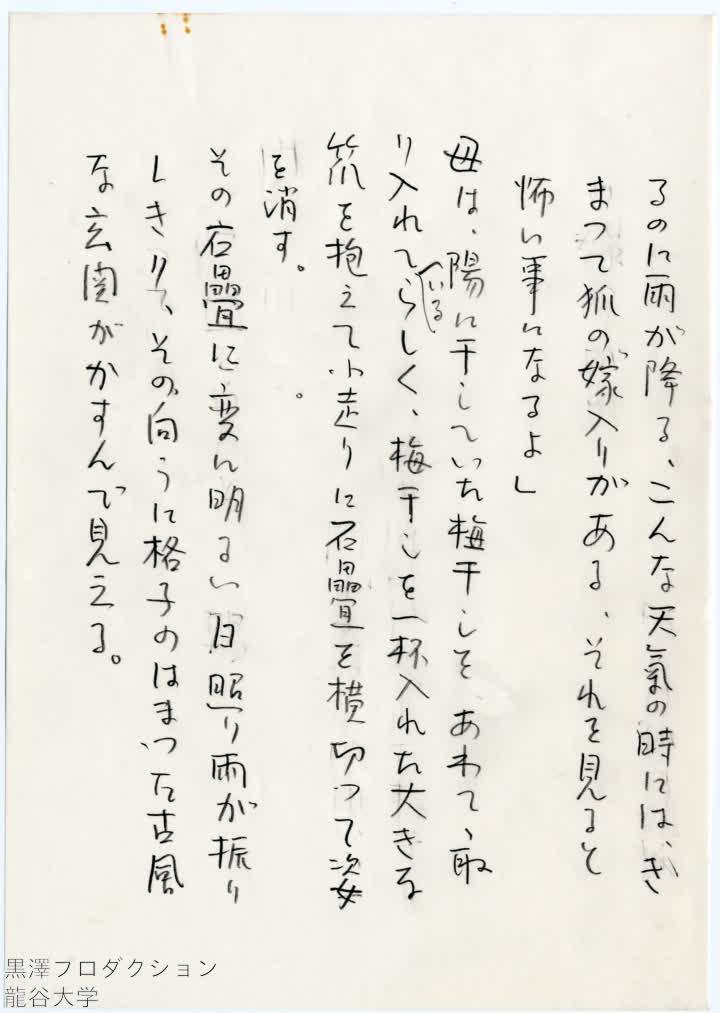 るのに雨が降る、こんな天氣の時には、き
まつて狐の嫁入りがある、それを見ると
怖い事になるよ」
母は、陽に干していた梅干しを、あわて、取
り入れてらしく、梅干しを一杯入れた大きな
いる
笊を抱えて小走りに石疊を横切つて姿
を消す。
その石疊に変に明るい日照り雨が振り
しきり、その向うに格子のはまつた古風
な玄関がかすんで見える。
黒澤プロダクション
龍谷大学